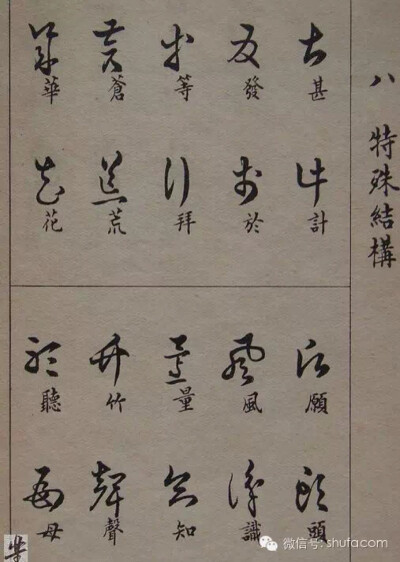 八 特殊結構
甚 計
發 於
等 拜
蒼 荒
華 花
願 頭
風 識
量 知
竹 聲
聽 母
微信号: shufacom